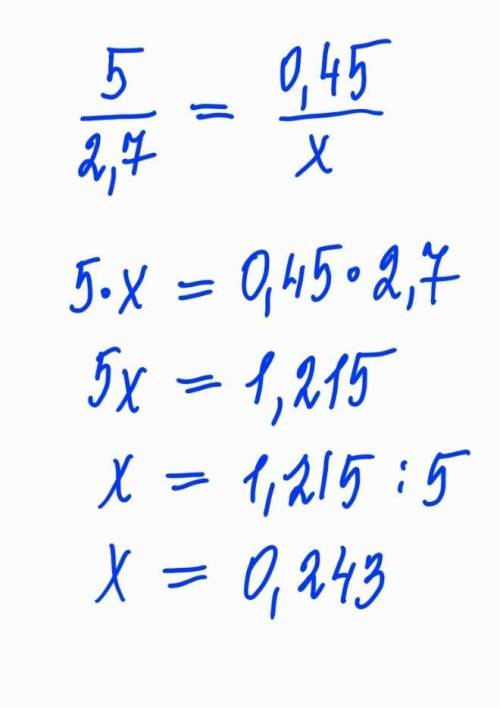 5/2,7 = 0,45/x
5·x = 0,45·2,7
5x = 1,215
x = 1,215 : 5
x = 0,243